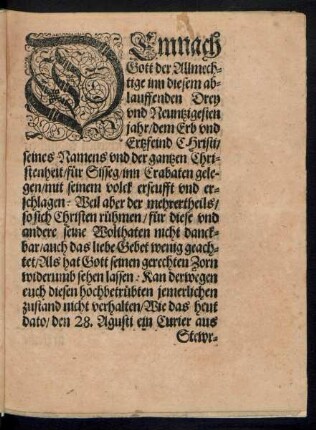 DEmnach
Gott der Allmech-
tige inn diesem ab-
lauffenden Drey
vnd Neuntzigesten
jahr/dem Erb vnd
Ertzfeind CHristi/
seines Namens vnd der gantzen Chri-
stenheit/für Sisseg/inn Crabaten gele-
gen/mit seinem volck erseufft vnd er-
schlagen: Weil aber der mehrertheils/
so sich Christen rühmen/für diese vnd
andere seine Wolthaten nicht danck-
bar/auch das liebe Gebet wenig geach-
tet/Als hat Gott seinen gerechten Zorn
widerumb sehen lassen: Kan derwegen
euch diesen hochbetrübten jemerlichen
zustand nicht verhalten/Wie das heut
dato/den 28. Agusti ein Curier aus
Stewr-